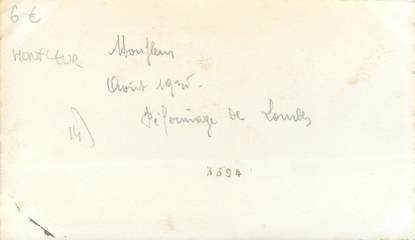 6 €
HONFLEUR
Honfleur
Août 1935.
Pélerinage de Lourdes
14)
3394